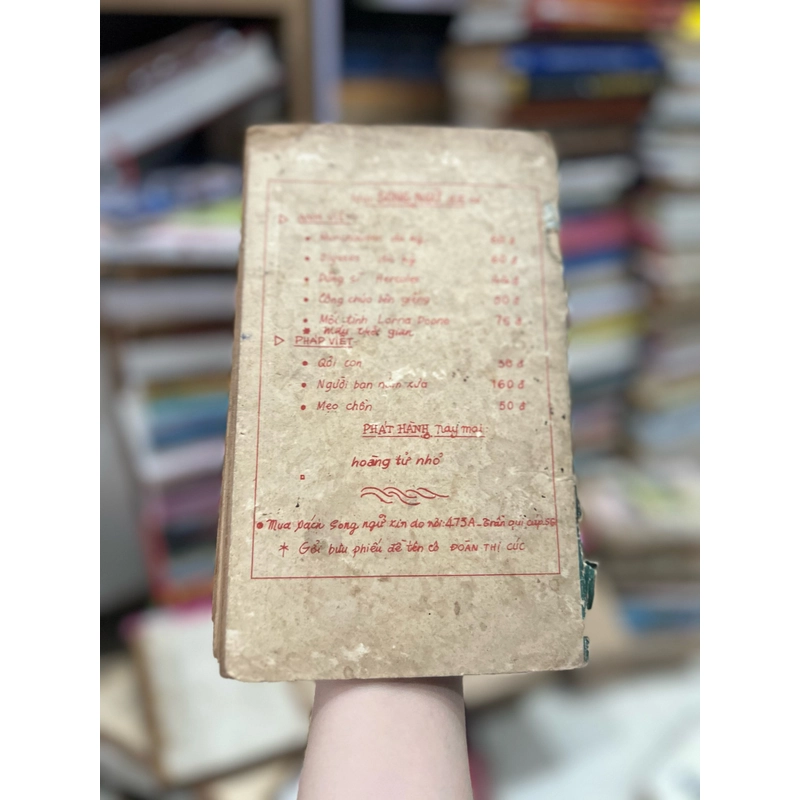 SONG NGỮ
▷ ANH VIỆT
• du ký 60 đ
• du ký 60 đ
• Dũng sĩ Hercules 44 đ
• Công chúa bên giếng 50 đ
• Mối tình Lorna Doone 75 đ
• Máy thời gian
▷ PHÁP VIỆT
• Đồi con 50 đ
• Người bạn năm xưa 160 đ
• Mèo chồn 50 đ
PHÁT HÀNH nay mai
hoàng tử nhỏ
• Mua sách song ngữ xin do nơi: 475A - Trần quí cáp SG
* Gởi bưu phiếu đề tên cô ĐOÀN THỊ CÚC